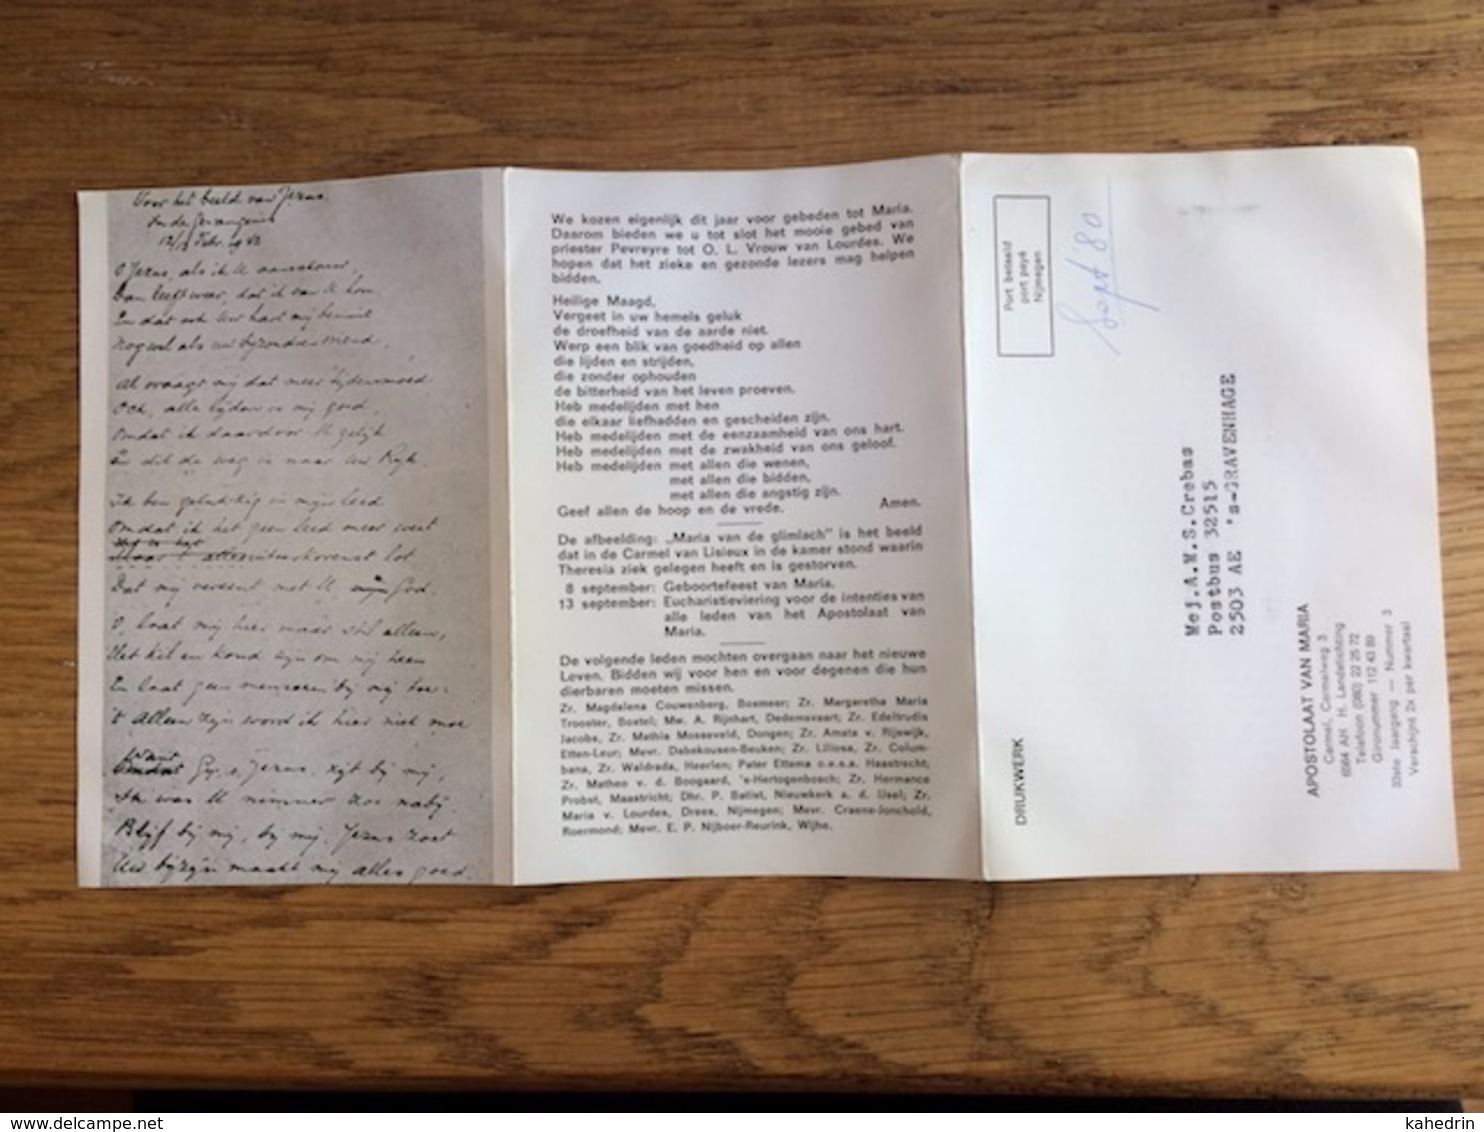 Voor het beeld van Jezus.
In de gevangenis
12/13 Febr. 1942
O Jezus, als ik U aanschouw,
Dan leeft weer, dat ik van U hou
En dat ook Uw hart mij bemint
Nog wel als uw bijzondere vriend.
Al vraagt mij dat meer lijdensmoed
Och, alle lijden is mij goed,
Omdat ik daardoor U gelijk
En dit de weg is naar Uw Rijk.
Ik ben gelukkig in mijn leed
Omdat ik het geen leed meer weet
Maar 't alleruitverkorenst lot
Dat mij vereent met U, mijn God.
O, laat mij hier maar stil alleen,
Het kil en koud zijn om mij heen
En laat geen menschen bij mij toe:
't Alleen zijn word ik hier niet moe
Want Gij, o Jezus, zijt bij mij,
Ik was U nimmer zoo nabij.
Blijf bij mij, bij mij, Jezus zoet
Uw bijzijn maakt mij alles goed.
We kozen eigenlijk dit jaar voor gebeden tot Maria.
Daarom bieden we u tot slot het mooie gebed van
priester Pevreyre tot O. L. Vrouw van Lourdes. We
hopen dat het zieke en gezonde lezers mag helpen
bidden.
Heilige Maagd,
Vergeet in uw hemels geluk
de droefheid van de aarde niet.
Werp een blik van goedheid op allen
die lijden en strijden,
die zonder ophouden
de bitterheid van het leven proeven.
Heb medelijden met hen
die elkaar liefhadden en gescheiden zijn.
Heb medelijden met de eenzaamheid van ons hart.
Heb medelijden met de zwakheid van ons geloof.
Heb medelijden met allen die wenen,
met allen die bidden,
met allen die angstig zijn.
Geef allen de hoop en de vrede. Amen.
De afbeelding: „Maria van de glimlach” is het beeld
dat in de Carmel van Lisieux in de kamer stond waarin
Theresia ziek gelegen heeft en is gestorven.
8 september: Geboortefeest van Maria.
13 september: Eucharistieviering voor de intenties van
alle leden van het Apostolaat van
Maria.
De volgende leden mochten overgaan naar het nieuwe
Leven. Bidden wij voor hen en voor degenen die hun
dierbaren moeten missen.
Zr. Magdalena Couwenberg, Boxmeer; Zr. Margaretha Maria
Trooster, Boxtel; Mw. A. Rijnhart, Dedemsvaart; Zr. Edeltrudis
Jacobs, Zr. Mathia Mosseveld, Dongen; Zr. Amata v. Rijswijk,
Etten-Leur; Mevr. Dabekausen-Beuken; Zr. Liliosa, Zr. Colum-
bana, Zr. Waldrada, Heerlen; Pater Ettema o.e.s.a. Haastrecht;
Zr. Matheo v. d. Boogaard, 's-Hertogenbosch; Zr. Hermance
Probst, Maastricht; Dhr. P. Batist, Nieuwkerk a. d. IJsel; Zr.
Maria v. Lourdes, Drees, Nijmegen; Mevr. Craens-Jonchold,
Roermond; Mevr. E. P. Nijboer-Reurink, Wijhe.
Port betaald
port payé
Nijmegen
Sept '80
Mej.A.M.S.Crebas
Postbus 32515
2503 AE 's-GRAVENHAGE
DRUKWERK
APOSTOLAAT VAN MARIA
Carmel, Carmelweg 3
6564 AH H. Landstichting
Telefoon (080) 22 25 72
Gironummer 112 43 89
33ste Jaargang — Nummer 3
Verschijnt 2x per kwartaal
delcampe.net
kahedrin